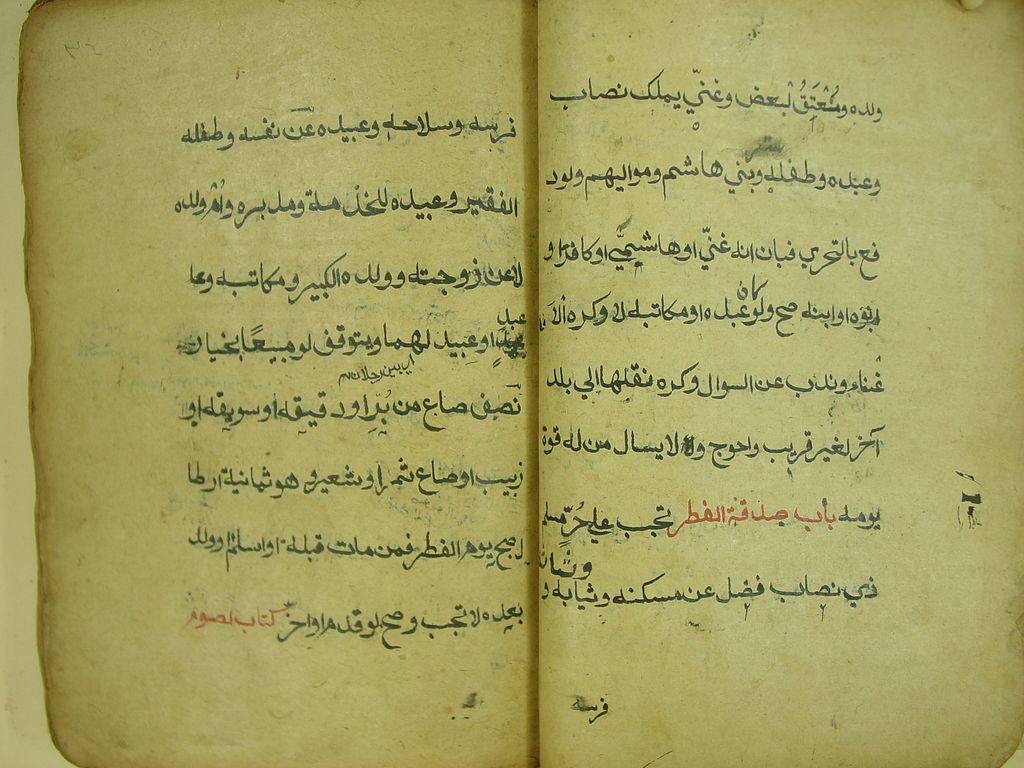 ولده ومُعْتَقُ البعض وغنيّ يملك نصاب
وعبده وطفله وبني هاشم ومواليهم ولود
فع بالتحري فبان انه غنيّ او هاشميّ او كافر او
ابوه او ابنه صح ولو كان عبده او مكاتبه لا وكره الا
غناء وندب عن السوال وكره نقلها الي بلد
آخر لغير قريب واحوج ولا يسال من له قوة
يومه باب صدقة الفطر تجب علي حُرّ مسلم
ذي نصاب فضل عن مسكنه وثيابه واثاثه و
فرسه
فرسه وسلاحه وعبيده عن نفسه وطفله
الفقير وعبيده للخدمة ومدبره وامّ ولده
لا عن زوجته وولده الكبير ومكاتبه وعا
عبد او عبيد لهما ويتوقف لو مبيعًا بخيار
اي بين رجلان
نصف صاع من بُر او دقيقه او سويقه او
زبيب او صاع تمر او شعير وهو ثمانية ارطا
ل صبح يوم الفطر فمن مات قبله او اسلم او ولد
بعده لا تجب وصح لو قدم او اخّر كتاب الصوم